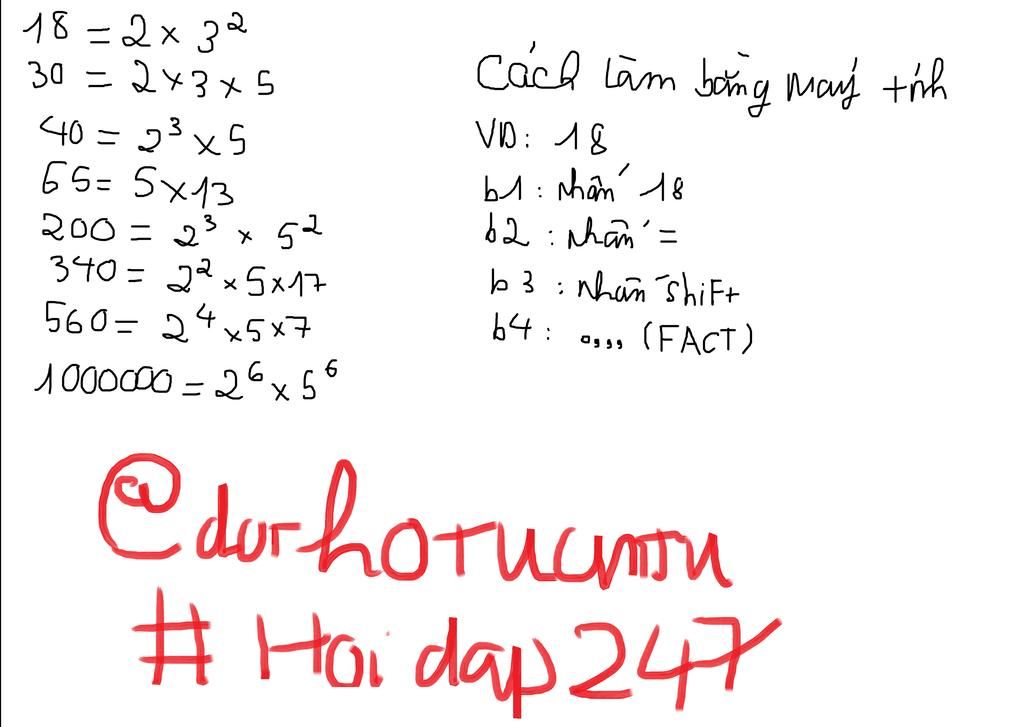 18 = 2 × 3²
30 = 2 × 3 × 5
40 = 2³ × 5
65 = 5 × 13
200 = 2³ × 5²
340 = 2² × 5 × 17
560 = 2⁴ × 5 × 7
1000000 = 2⁶ × 5⁶
Cách làm bằng máy tính
VD: 18
b1: nhấn 18
b2: nhấn =
b3: nhấn Shift
b4: °,,, (FACT)
# Hoidap247